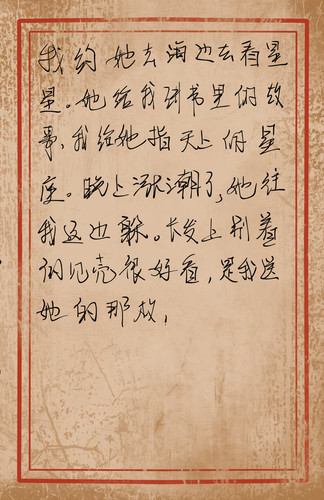 我约她去海边去看星
星。她给我讲书里的故
事、我给她指天上的星
座。晚上涨潮了，她往
我这边躲。长发上别着
的贝壳很好看，是我送
她的那枚，